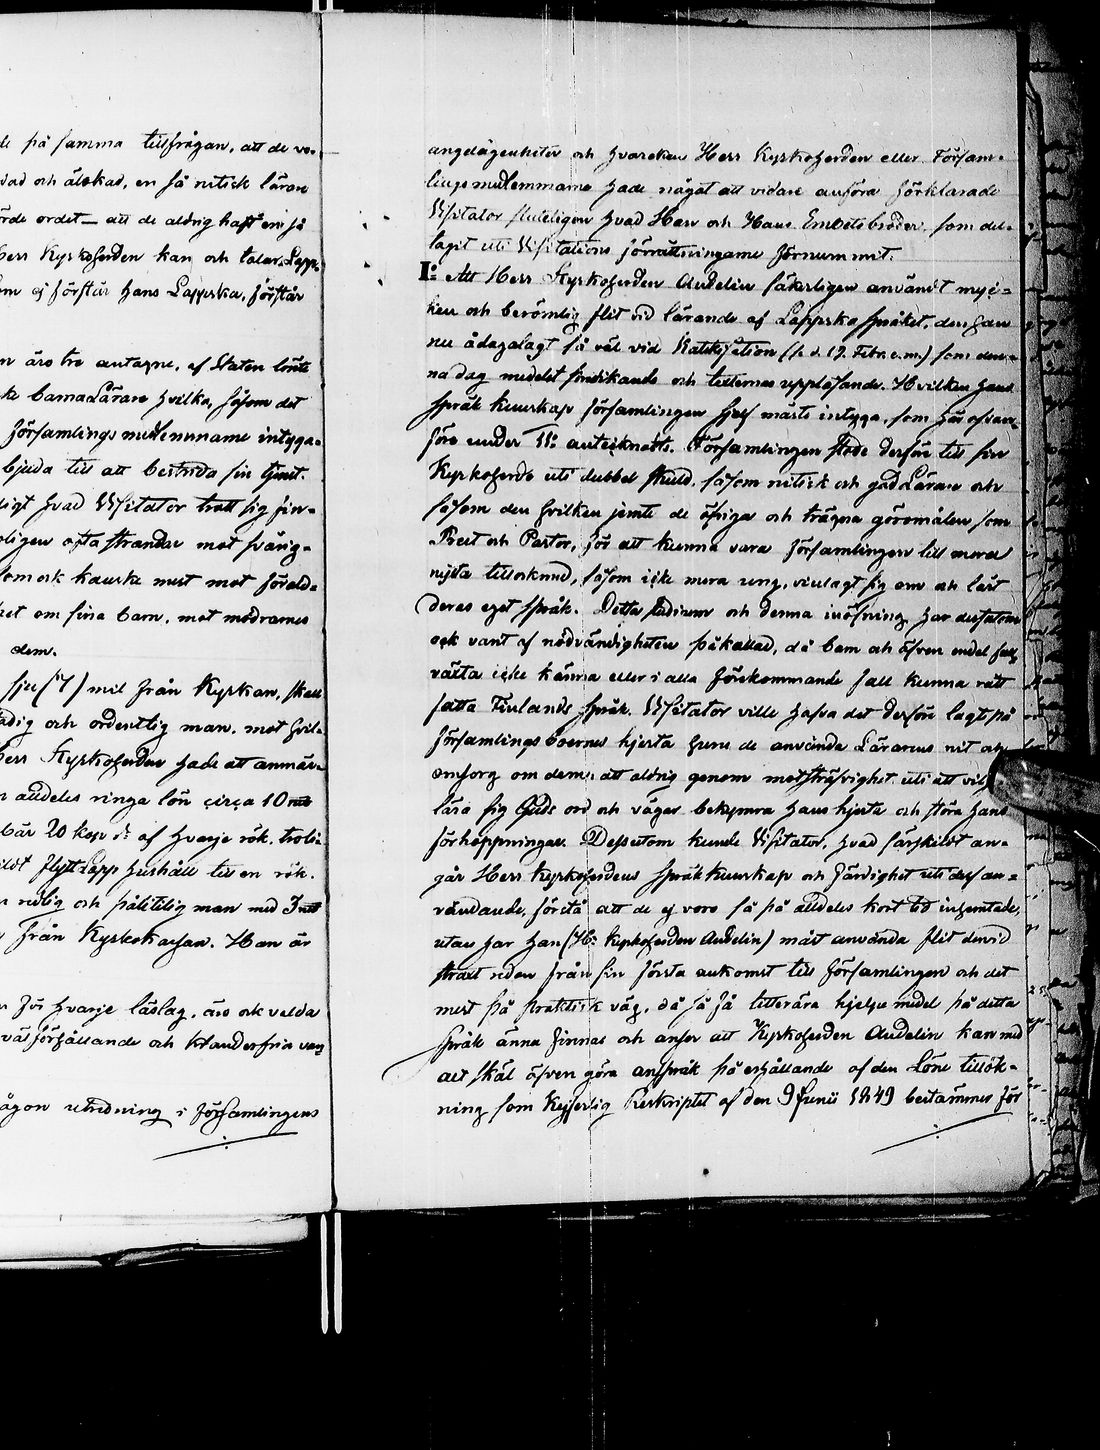 de på samma tillfrågan, att de vo-
dad och älskad, en så nitisk lärare
ordet – att de aldrig haft en så
Herr Kyrkoherden kan och talar Lapp-
ej förstår hans Lappska, förstår
äro tre antagne, af Staten lönte
barnaLärare hvilka, såsom det
församlings medlemmarne intyga-
bjuda till att bestrida sin tjenst.
hvad Visitator trott sig fin-
ofta strandar mot svårig-
som ock kanske mest mot föräld-
om sina barn, mot mödrarnes
dem.
sju (7) mil från Kyrkan, skall
och ordentlig man, mot hvil-
Herr Kyrkoherden hade att anmär-
alldeles ringa lön circa 10
20 kop. af hvarje rök, troli-
flyttLapp hushåll till en rök.
och pålitlig man med 3
från Kyrkokassan. Han är
för hvarje läslag, äro ock valda
välförhållande och klanderfria
någon utredning i församlingens
angelägenheter och hvarken Herr Kyrkoherden eller Försam-
lingsmedlemmarne hade något att vidare anföra förklarade
Visitator slutligen hvad Han och Hans Embetsbröder, som del-
tagit uti Visitations förrättningarne förnummit.
I: Att Herr Kyrkoherden Andelin säkerligen användt myc-
ken och berömlig flit vid lärande af Lappska språket, den han
nu ådagalagt så väl vid Katekisation (p. d. 19. Febr. c. m.) som den-
na dag medelst predikande och texternas uppläsande. Hvilken hans
språk kunskap församlingen sjelf måste intyga, som här ofvan-
före under 11: antecknats. Församlingen stode derföre till sin
Kyrkoherde uti dubbel skuld, såsom nitisk och god Lärare och
såsom den hvilken jemte de öfriga och trägna göromålen som
Prest och Pastor, för att kunna vara församlingen till mera
nytta tillskynd, såsom icke mera ung, vinlagt sig om att lärt
deras eget språk. Detta studium och denna inöfning har dessutom
ock varit af nödvändigheten påkallad, då barn och äfven endel full-
växta icke känna eller i alla förekommande fall kunna rätt
fatta Finlands språk. Visitator ville hafva det derföre lagt på
församlings boernes hjerta huru de använda Lärarens nit och
omsorg om dem; att aldrig genom motsträfvighet uti att vil
lära sig Guds ord och vägar bekymra hans hjerta och störa hans
förhoppningar. Dessutom kunde Visitator, hvad särskildt an-
går Herr Kyrkoherdens språk kunskap och färdighet uti dess an-
vändande, förstå att de ej voro så på alldeles kort tid inhemtade,
utan har han (Hr Kyrkoherden Andelin) måst använda flit dervid
straxt redan från sin första ankomst till församlingen och det
mest på praktisk väg, då så få litterära hjelpe medel på detta
språk ännu finnas och anser att Kyrkoherden Andelin kan med
allt skäl äfven göra anspråk på erhållande af den Löne tillök-
ning som Kejserlig Reskriptet af den 9 Junii 1849 bestämmes för